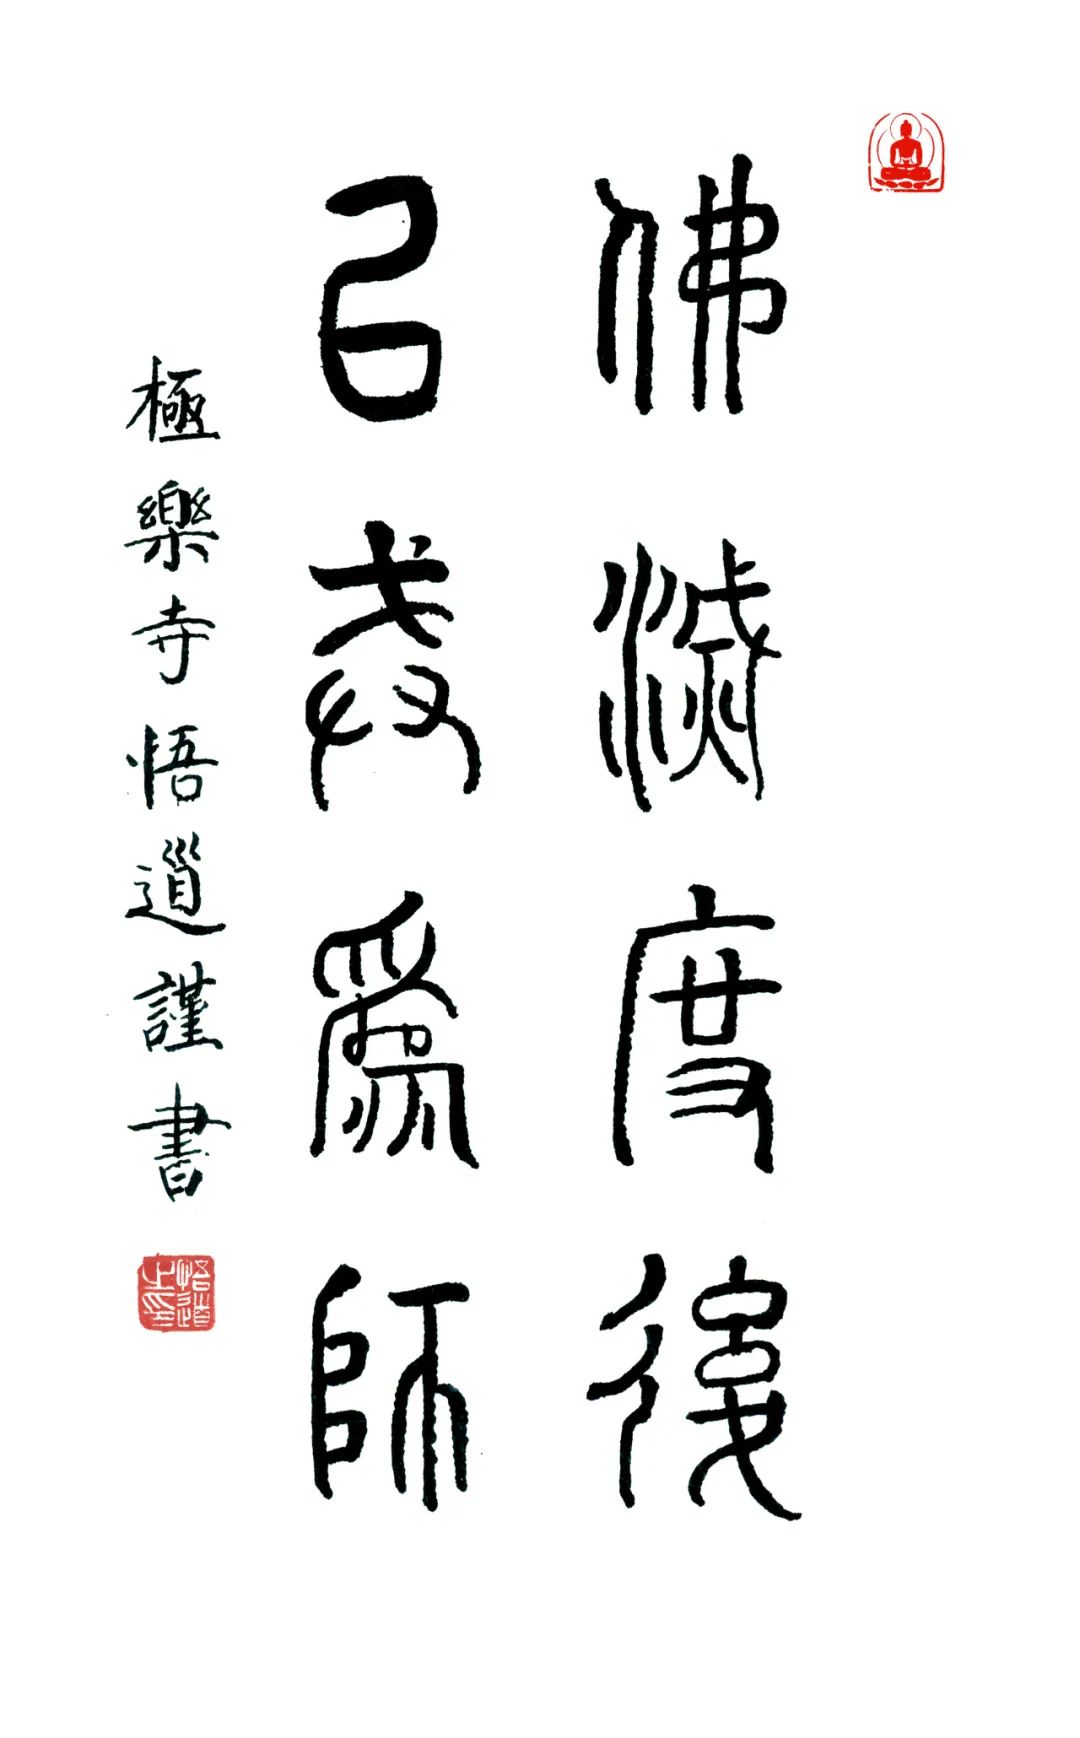 佛滅度後
以戒爲師
極樂寺悟道謹書
悟道之印